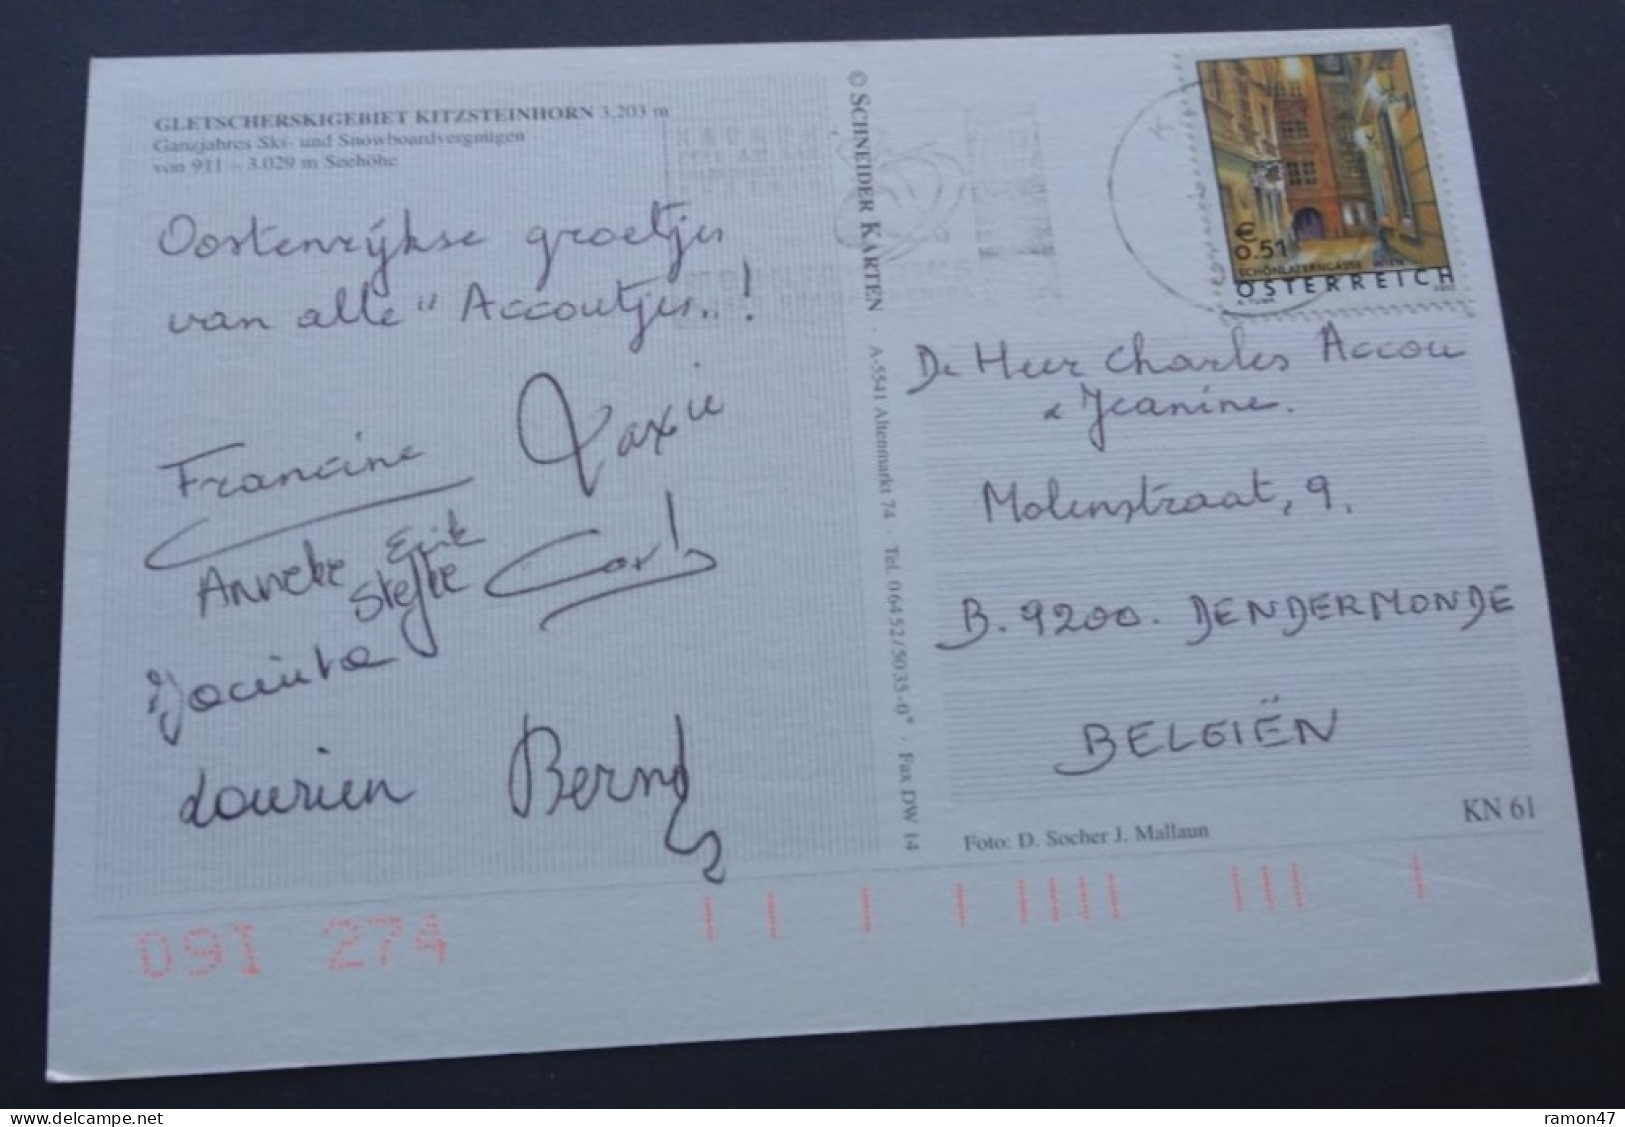 GLETSCHERSKIGEBIET KITZSTEINHORN 3.203 m
Ganzjahres Ski- und Snowboardvergnügen
von 911 – 3.029 m Seehöhe
Oostenrijkse groetjes
van alle "Accoutjes..!
Francine
Anneke Erik
Stefke
Jacinta
Lourien Bernd
© SCHNEIDER KARTEN · A-5541 Altenmarkt 74 · Tel. 06452/5035-0* · Fax DW 14
€
0.51
SCHÖNLATERNGASSE WIEN
ÖSTERREICH
De Heer Charles Accou
& Jeanine.
Molenstraat, 9.
B. 9200. DENDERMONDE
BELGIËN
KN 61
Foto: D. Socher J. Mallaun
091 274
ramon47